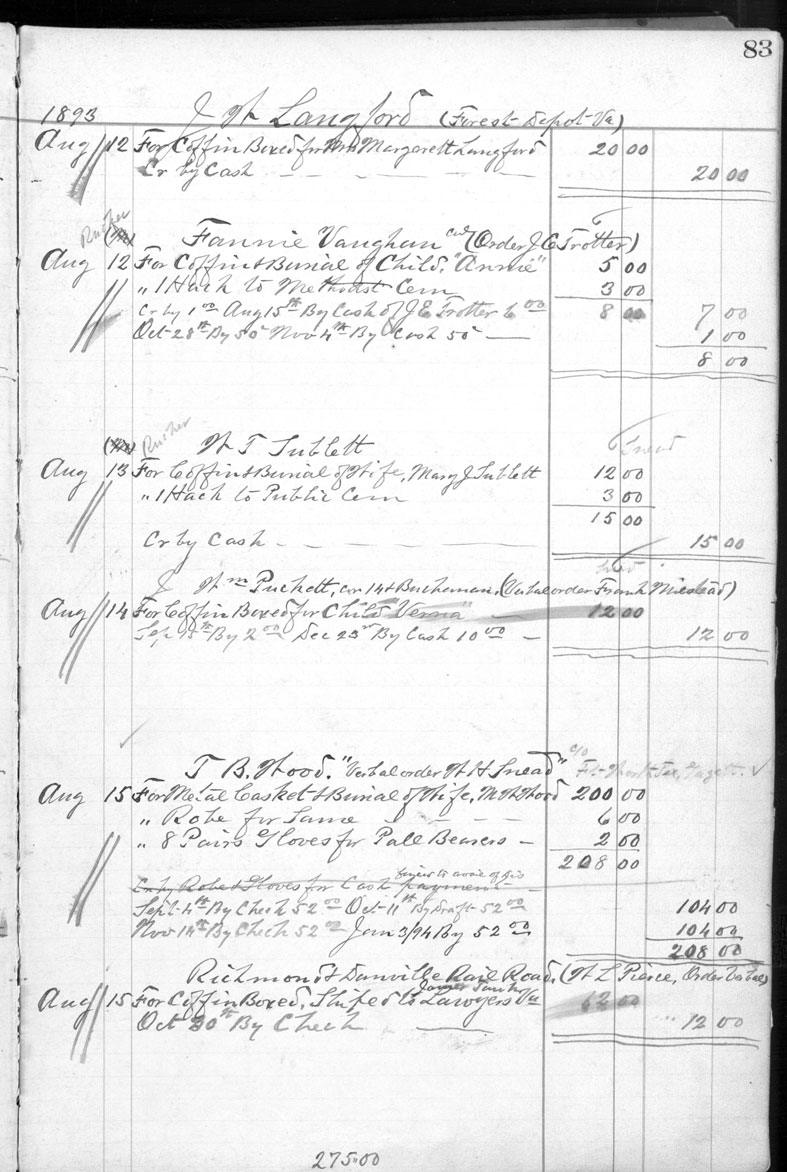 83
1893 J W Langford (Forest Depot Va)
Aug 12 For Coffin Boxed for Mrs Margarett Langford 20 00
Cr by Cash 20 00
Rucker
Fannie Vaughan cold (Order J E Trotter)
Aug 12 For Coffin & Burial of Child, "Annie" 5 00
" 1 Hack to Methodst Cem 3 00
Cr by 1 00 Aug 15th By Cash of J E Trotter 6 00 8 00 7 00
Oct 28th By 50 Nov 4th By Cash 50 1 00
8 00
Rucker
W T Sublett Snead
Aug 13 For Coffin & Burial of Wife, Mary J Sublett 12 00
" 1 Hack to Public Cem 3 00
15 00
Cr by Cash 15 00
Wm Puckett, cor 14 & Buchanan, (Verbal order Frank Milstead)
Aug 14 For Coffin Boxed for Child "Verna" 12 00
Sep By 2 00 Dec 23rd By Cash 10 00 12 00
T B. Wood. "Verbal order W H Snead" c/o Ft Worth Tex, Gazette
Aug 15 For Metal Casket & Burial of Wife, M Wood 200 00
" Robe for Same 6 00
" 8 Pairs Gloves for Pall Bearers 2 00
208 00
Cr by Robe & Gloves for Cash payment
Sept 4th By Check 52 00 Oct 11th By Draft 52 00 104 00
Nov 14th By Check 52 00 Jan 3/94 By 52 00 104 00
208 00
Richmond & Danville Rail Road, (W L Pierce, Order Verbal)
Aug 15 For Coffin Boxed, Shiped to Lawyers Va 00
Oct 30th By Check 12 00
275.00